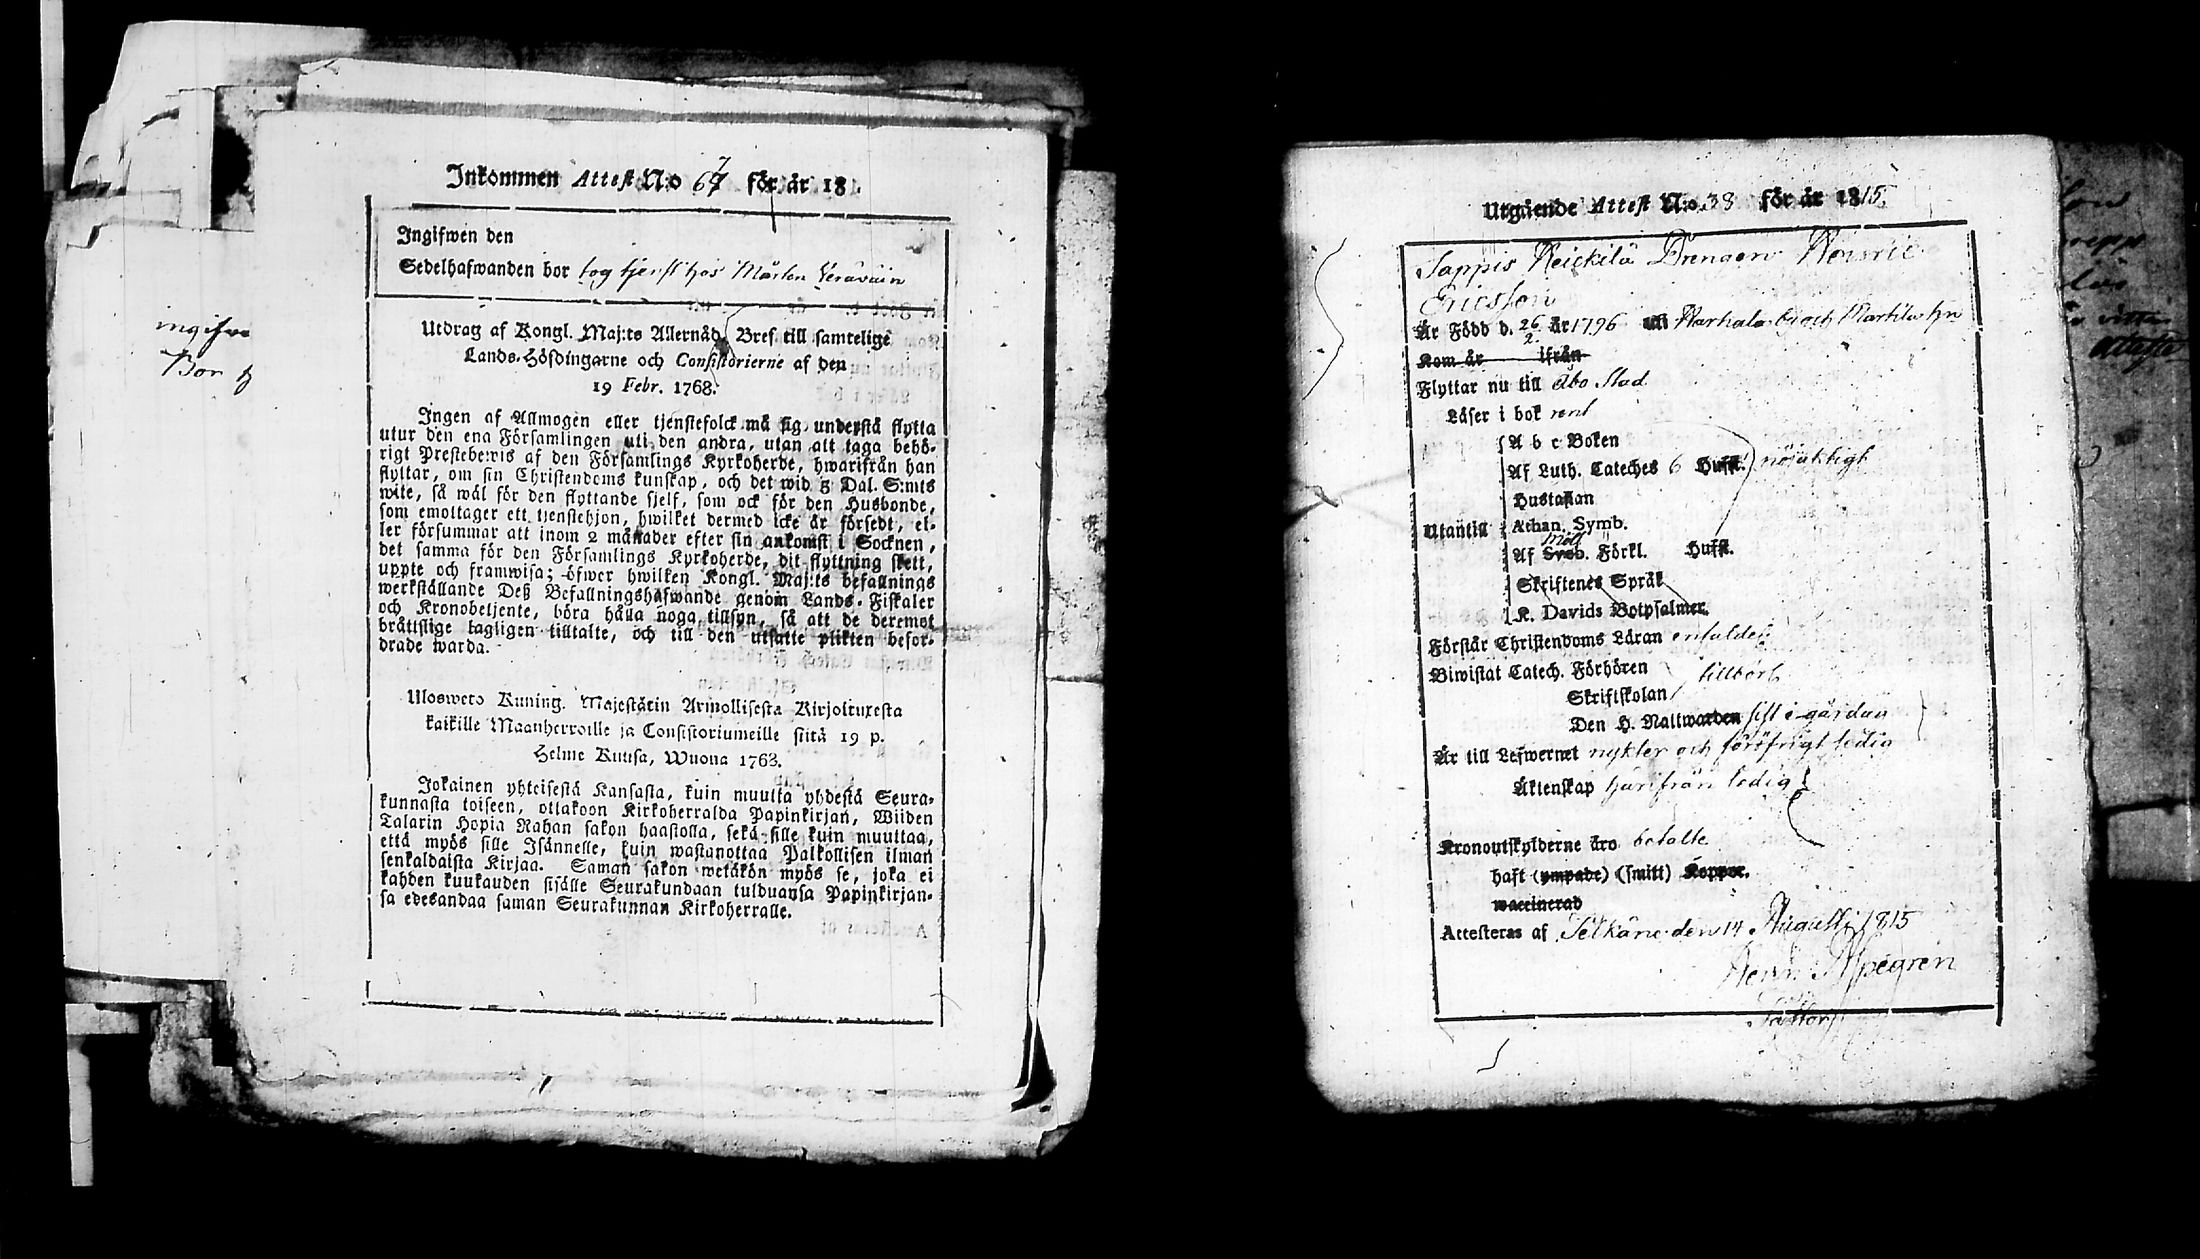 Inkommen Attest N:o 67 för år 18 .
Ingifwen den
Sedelhafwanden bor tog tjenst hos Mårten
Utdrag af Kongl. Maj:ts Allernåd. Bref till samtelige
Lands-Höfdingarne och Consistorierne af den
19 Febr. 1768.
Ingen af Allmogen eller tjenstefolck må sig understå flytta
utur den ena Församlingen uti den andra, utan att taga behö-
rigt Prestebewis af den Församlings Kyrkoherde, hwarifrån han
flyttar, om sin Christendoms kunskap, och det wid 5 Dal. S:mts
wite, så wäl för den flyttande sjelf, som ock för den Husbonde,
som emottager ett tjenstehjon, hwilket dermed icke är försedt, el-
ler försummar att inom 2 månader efter sin ankomst i Socknen,
det samma för den Församlings Kyrkoherde, dit flyttning skett,
uppte och framwisa; öfwer hwilken Kongl. Maj:ts befallnings
werkställande Deß Befallningshafwande genom Lands-Fiskaler
och Kronobetjente, böra hålla noga tillsyn, så att de deremot
bråttslige lagligen tilltalte, och till den utsatte plikten befor-
drade warda.
Ulosweto Kuning. Majestätin Armollisesta Kirjoituxesta
kaikille Maanherroille ja Consistoriumeille siitä 19 p.
Helme Kuusa, Wuona 1768.
Jokainen yhteisestä Kansasta, kuin muutta yhdestä Seura-
kunnasta toiseen, ottakoon Kirkoherralda Papinkirjan, Wiiden
Talarin Hopia Rahan sakon haastolla, sekä sille kuin muuttaa,
että myös sille Isännelle, kuin wastanottaa Palkollisen ilman
senkaldaista Kirjaa. Saman sakon wetäkön myös se, joka ei
kahden kuukauden sisälle Seurakundaan tulduansa Papinkirjan-
sa edesandaa saman Seurakunnan Kirkoherralle.
ingifwe
Bor
Utgående Attest N:o 38 för år 1815.
Sappis Heickilä Drengen Henric
Ericsson
Är Född d. 26/2 år 1796 uti Harhala by och Martila hn
Kom år ifrån
Flyttar nu till Åbo Stad
Läser i bok rent
A b c Boken
Af Luth. Cateches 6 Hufst. nöjaktigt
Hustaflan
Utantill Athan. Symb.
Af Sveb. Förkl. Hufst.
Skriftenes Språk
K. Davids Botpsalmer.
Förstår Christendoms Läran enfaldeł.
Biwistat Catech. Förhören
Skriftskolan tillbörl.
Den H. Nattwarden sist i gårdag
Är till Lefwernet nykter och för öfrigt ledig
Äktenskap härifrån ledig
Kronoutskylderne äro betalte
haft (ympade) (smitt) Koppor.
waccinerad
Attesteras af Selkäne den 14 Augusti 1815
Henr: Alpegren
Pastor